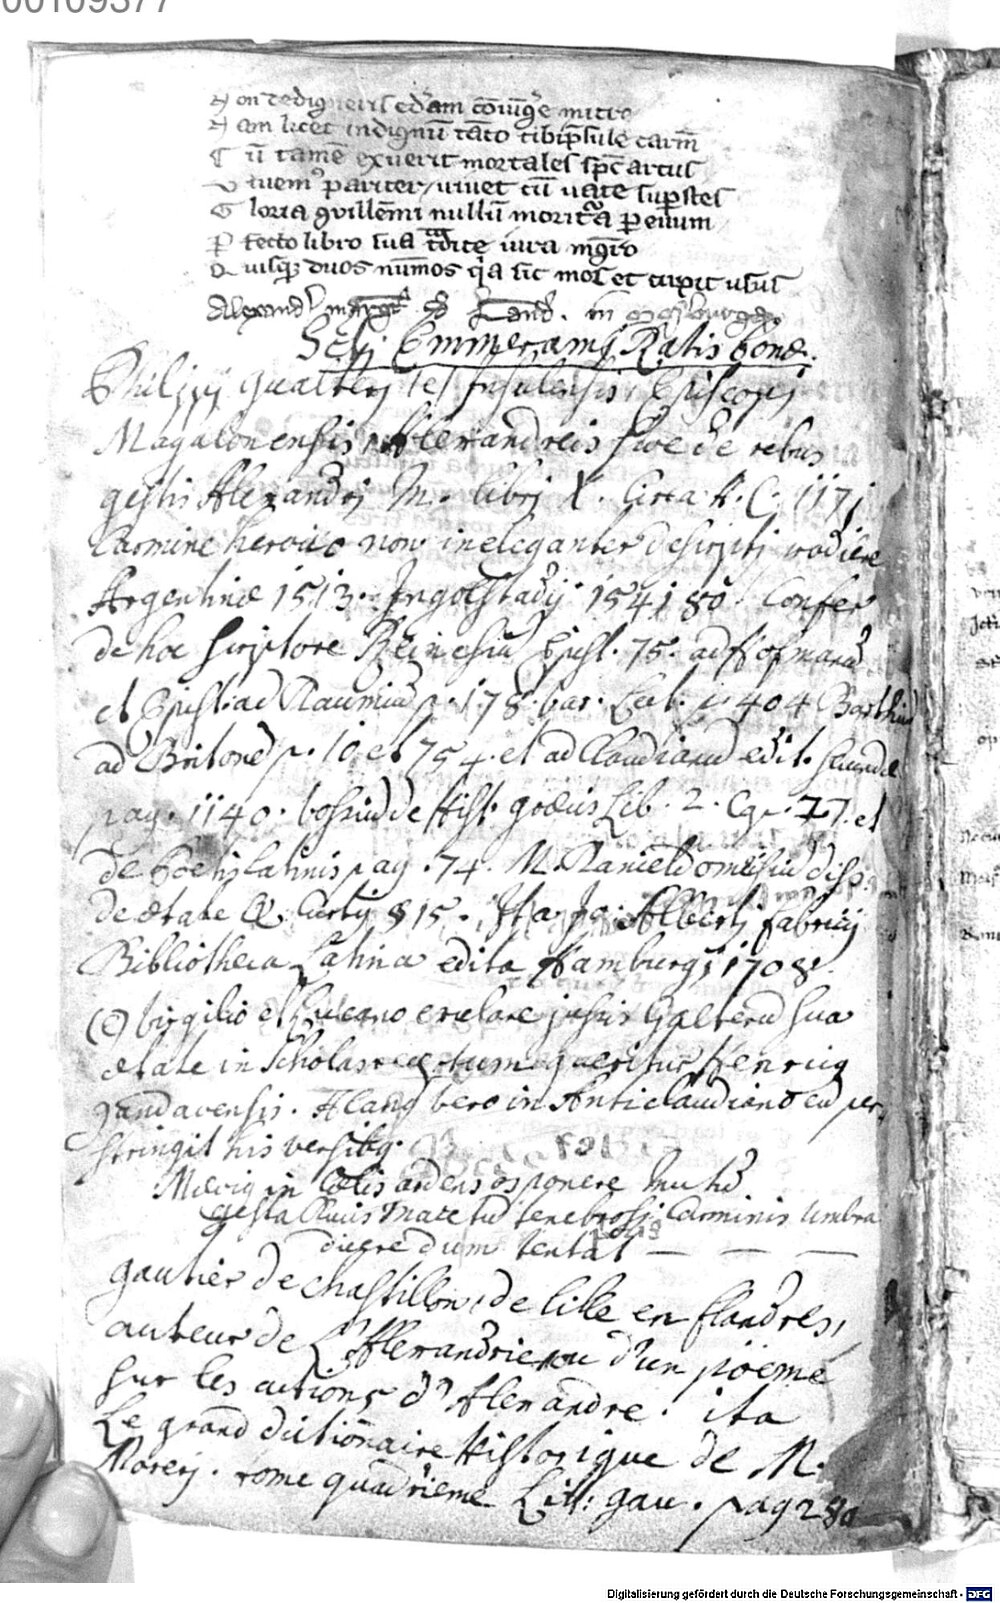 00109377
N on dedigneris ed'am cōiūg'e mitro
N am licet indignū tāto tibi p̄sule carm̄
C ū tamē exuerit mortales sp̄c artus
V iuem' pariter, uiuet cū uate sup̄stes
G loria guillēmi nullū moritᵃ ꝑ euum
P fecto libro sua
Q uisq; duos nūmos q'a sic mos et cupit usus
Alexand'
S. Emmerami Ratisbonæ.
Philippi Gualteri Insulensis, Episcopi
Magalonensis, Alexandreis sive de rebus
gestis Alexandri M. libri X. Circa A. C. 1171
Carmine heroico non ineleganter descripti prodiere
Argentinæ 1513. Ingolstadij 1541 8o. Confer
de hoc scriptore Reinesiū Epist. 75. ad Hofmanū
et Epist. ad Daumiū p. 178. Var. Lect. p. 404 Barthiū
ad Britonē p. 10 et 754. et ad Claudianū edit. secundæ
pag. 1140. Vossiū de Hist. græcis Lib. 2. Cap. 77. et
de Poetis latinis pag. 74. M. Daniel diss.
de ætate Q. Curtij § 15. Ita Jo. Alberti Fabricij
Bibliotheca Latina edita Hamburgi 1708.
(e) Virgilio et Lucano exulare jussis Galterū sua
ætate in scholas receptum queritur Henricus
gandavensis. Alanus vero in Anticlaudiano eū per-
stringit his versibus.
Mævius in Cœlis ardens os ponere mutū
gesta Ducis Macetū tenebrosi Carminis umbra
dicere dum tentat — — —
Gautier de Chastillon, de Lille en flandres,
auteur de L'Alexandrie, ou d'un pöeme
sur les actions d'Alexandre. ita
Le grand dictiōnaire Historique de M.
Morery. tome quadrieme Lit: gau. pag 280
Digitalisierung gefördert durch die Deutsche Forschungsgemeinschaft - DFG